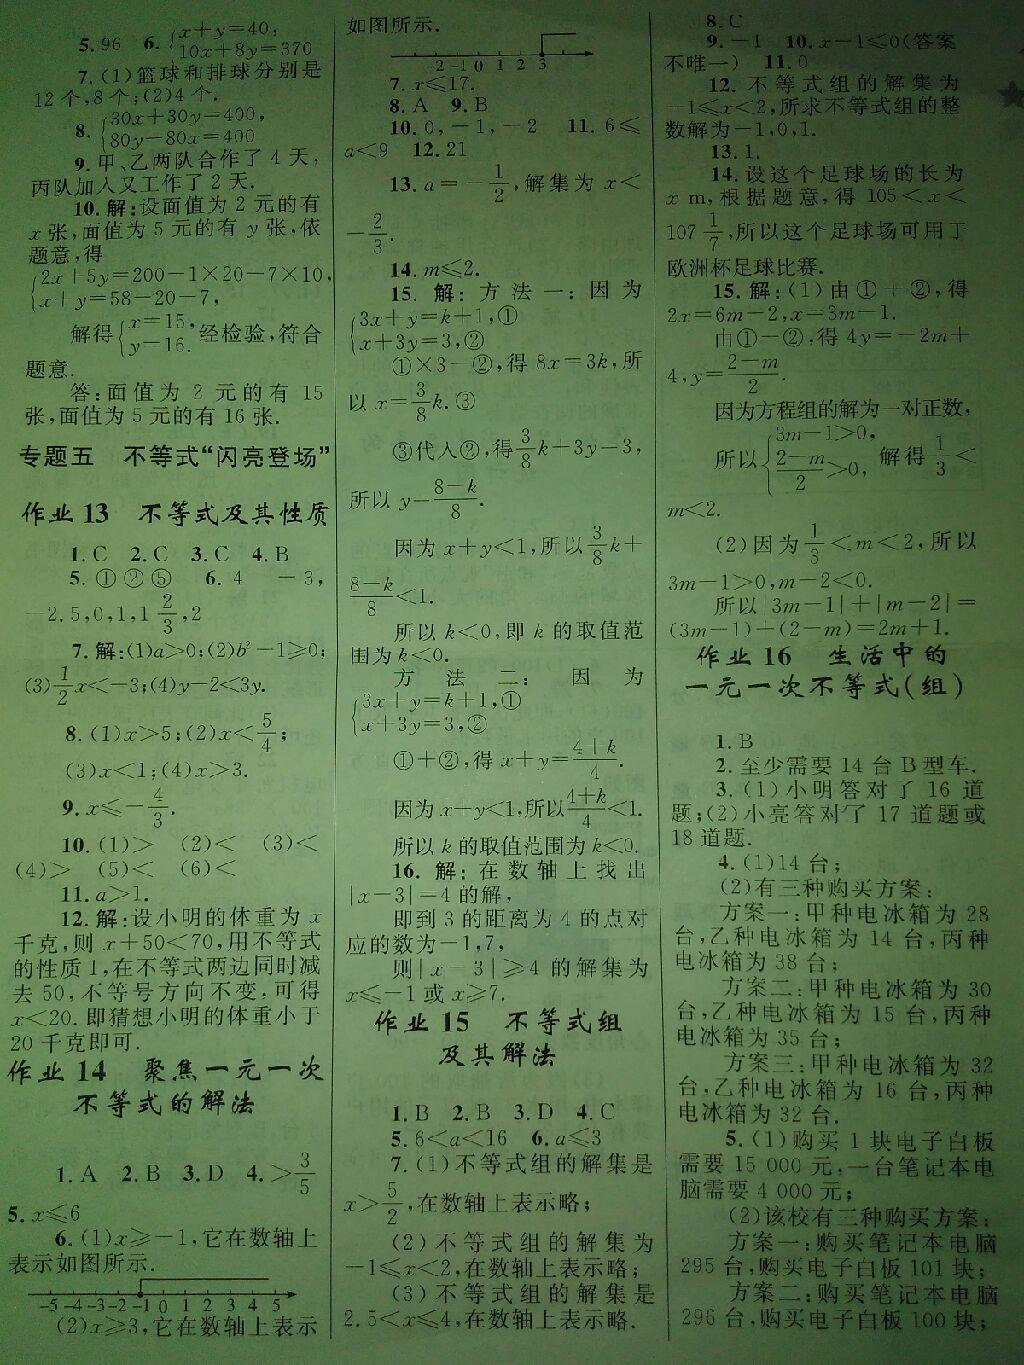 5. 96 6. {x+y=40,
10x+8y=370
7. (1)篮球和排球分别是
12个,8个;(2)4个.
8. {30x+30y=400,
80y-80x=400
9. 甲、乙两队合作了4天,
丙队加入又工作了2天.
10. 解:设面值为2元的有
x张,面值为5元的有y张,依
题意,得
{2x+5y=200-1×20-7×10,
x+y=58-20-7,
解得{x=15,
y=16. 经检验,符合
题意.
答:面值为2元的有15
张,面值为5元的有16张.
专题五 不等式“闪亮登场”
作业13 不等式及其性质
1. C 2. C 3. C 4. B
5. ①②⑤ 6. 4 -3,
-2.5,0,1,1 2/3,2
7. 解:(1)a>0;(2)b²-1≥0;
(3)1/2x<-3;(4)y-2<3y.
8. (1)x>5;(2)x<5/4;
(3)x<1;(4)x>3.
9. x≤-4/3.
10. (1)> (2)< (3)<
(4)> (5)< (6)<
11. a>1.
12. 解:设小明的体重为x
千克,则x+50<70,用不等式
的性质1,在不等式两边同时减
去50,不等号方向不变,可得
x<20.即猜想小明的体重小于
20千克即可.
作业14 聚焦一元一次
不等式的解法
1. A 2. B 3. D 4. >3/5
5. x≤6
6. (1)x≥-1,它在数轴上
表示如图所示.
-5 -4 -3 -2 -1 0 1 2 3 4 5
(2)x≥3,它在数轴上表示
如图所示.
-2 -1 0 1 2 3
7. x≤17.
8. A 9. B
10. 0,-1,-2 11. 6≤
a<9 12. 21
13. a=-1/2,解集为x<
-2/3.
14. m≤2.
15. 解:方法一:因为
{3x+y=k+1,①
x+3y=3,②
①×3-②,得8x=3k,所
以x=3/8k.③
③代入②,得3/8k+3y=3,
所以y=(8-k)/8.
因为x+y<1,所以3/8k+
(8-k)/8<1.
所以k<0,即k的取值范
围为k<0.
方法二:因为
{3x+y=k+1,①
x+3y=3,②
①+②,得x+y=(4+k)/4.
因为x+y<1,所以(4+k)/4<1.
所以k的取值范围为k<0.
16. 解:在数轴上找出
|x-3|=4的解,
即到3的距离为4的点对
应的数为-1,7,
则|x-3|≥4的解集为
x≤-1或x≥7.
作业15 不等式组
及其解法
1. B 2. B 3. D 4. C
5. 6<a<16 6. a≤3
7. (1)不等式组的解集是
x>5/2,在数轴上表示略;
(2)不等式组的解集为
-1≤x<2,在数轴上表示略;
(3)不等式组的解集是
2.5<x≤4,在数轴上表示略.
8. C
9. -1 10. x-1≤0(答案
不唯一) 11. 0
12. 不等式组的解集为
-1≤x<2,所求不等式组的整
数解为-1,0,1.
13. 1.
14. 设这个足球场的长为
x m,根据题意,得105<x<
107 1/7,所以这个足球场可用于
欧洲杯足球比赛.
15. 解:(1)由①+②,得
2x=6m-2,x=3m-1.
由①-②,得4y=-2m+
4,y=(2-m)/2.
因为方程组的解为一对正数,
所以{3m-1>0,
(2-m)/2>0, 解得1/3<
m<2.
(2)因为1/3<m<2,所以
3m-1>0,m-2<0.
所以|3m-1|+|m-2|=
(3m-1)+(2-m)=2m+1.
作业16 生活中的
一元一次不等式(组)
1. B
2. 至少需要14台B型车.
3. (1)小明答对了16道
题;(2)小亮答对了17道题或
18道题.
4. (1)14台;
(2)有三种购买方案:
方案一:甲种电冰箱为28
台,乙种电冰箱为14台,丙种
电冰箱为38台;
方案二:甲种电冰箱为30
台,乙种电冰箱为15台,丙种
电冰箱为35台;
方案三:甲种电冰箱为32
台,乙种电冰箱为16台,丙种
电冰箱为32台.
5. (1)购买1块电子白板
需要15 000元,一台笔记本电
脑需要4 000元;
(2)该校有三种购买方案:
方案一:购买笔记本电脑
295台,购买电子白板101块;
方案二:购买笔记本电脑
296台,购买电子白板100块;